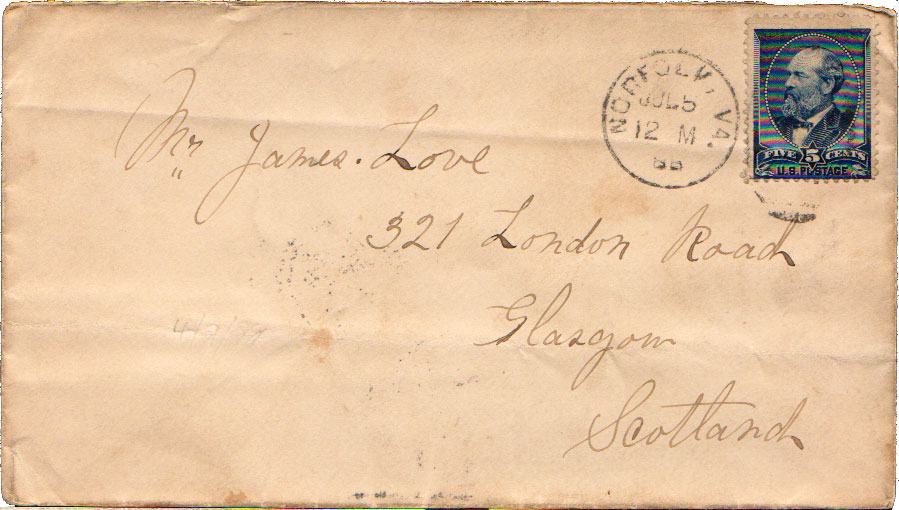 NORFOLK, VA.
JUL 5
12 M
88
FIVE 5 CENTS
U.S. POSTAGE
Mr James. Love
321 London Road
Glasgow
Scotland